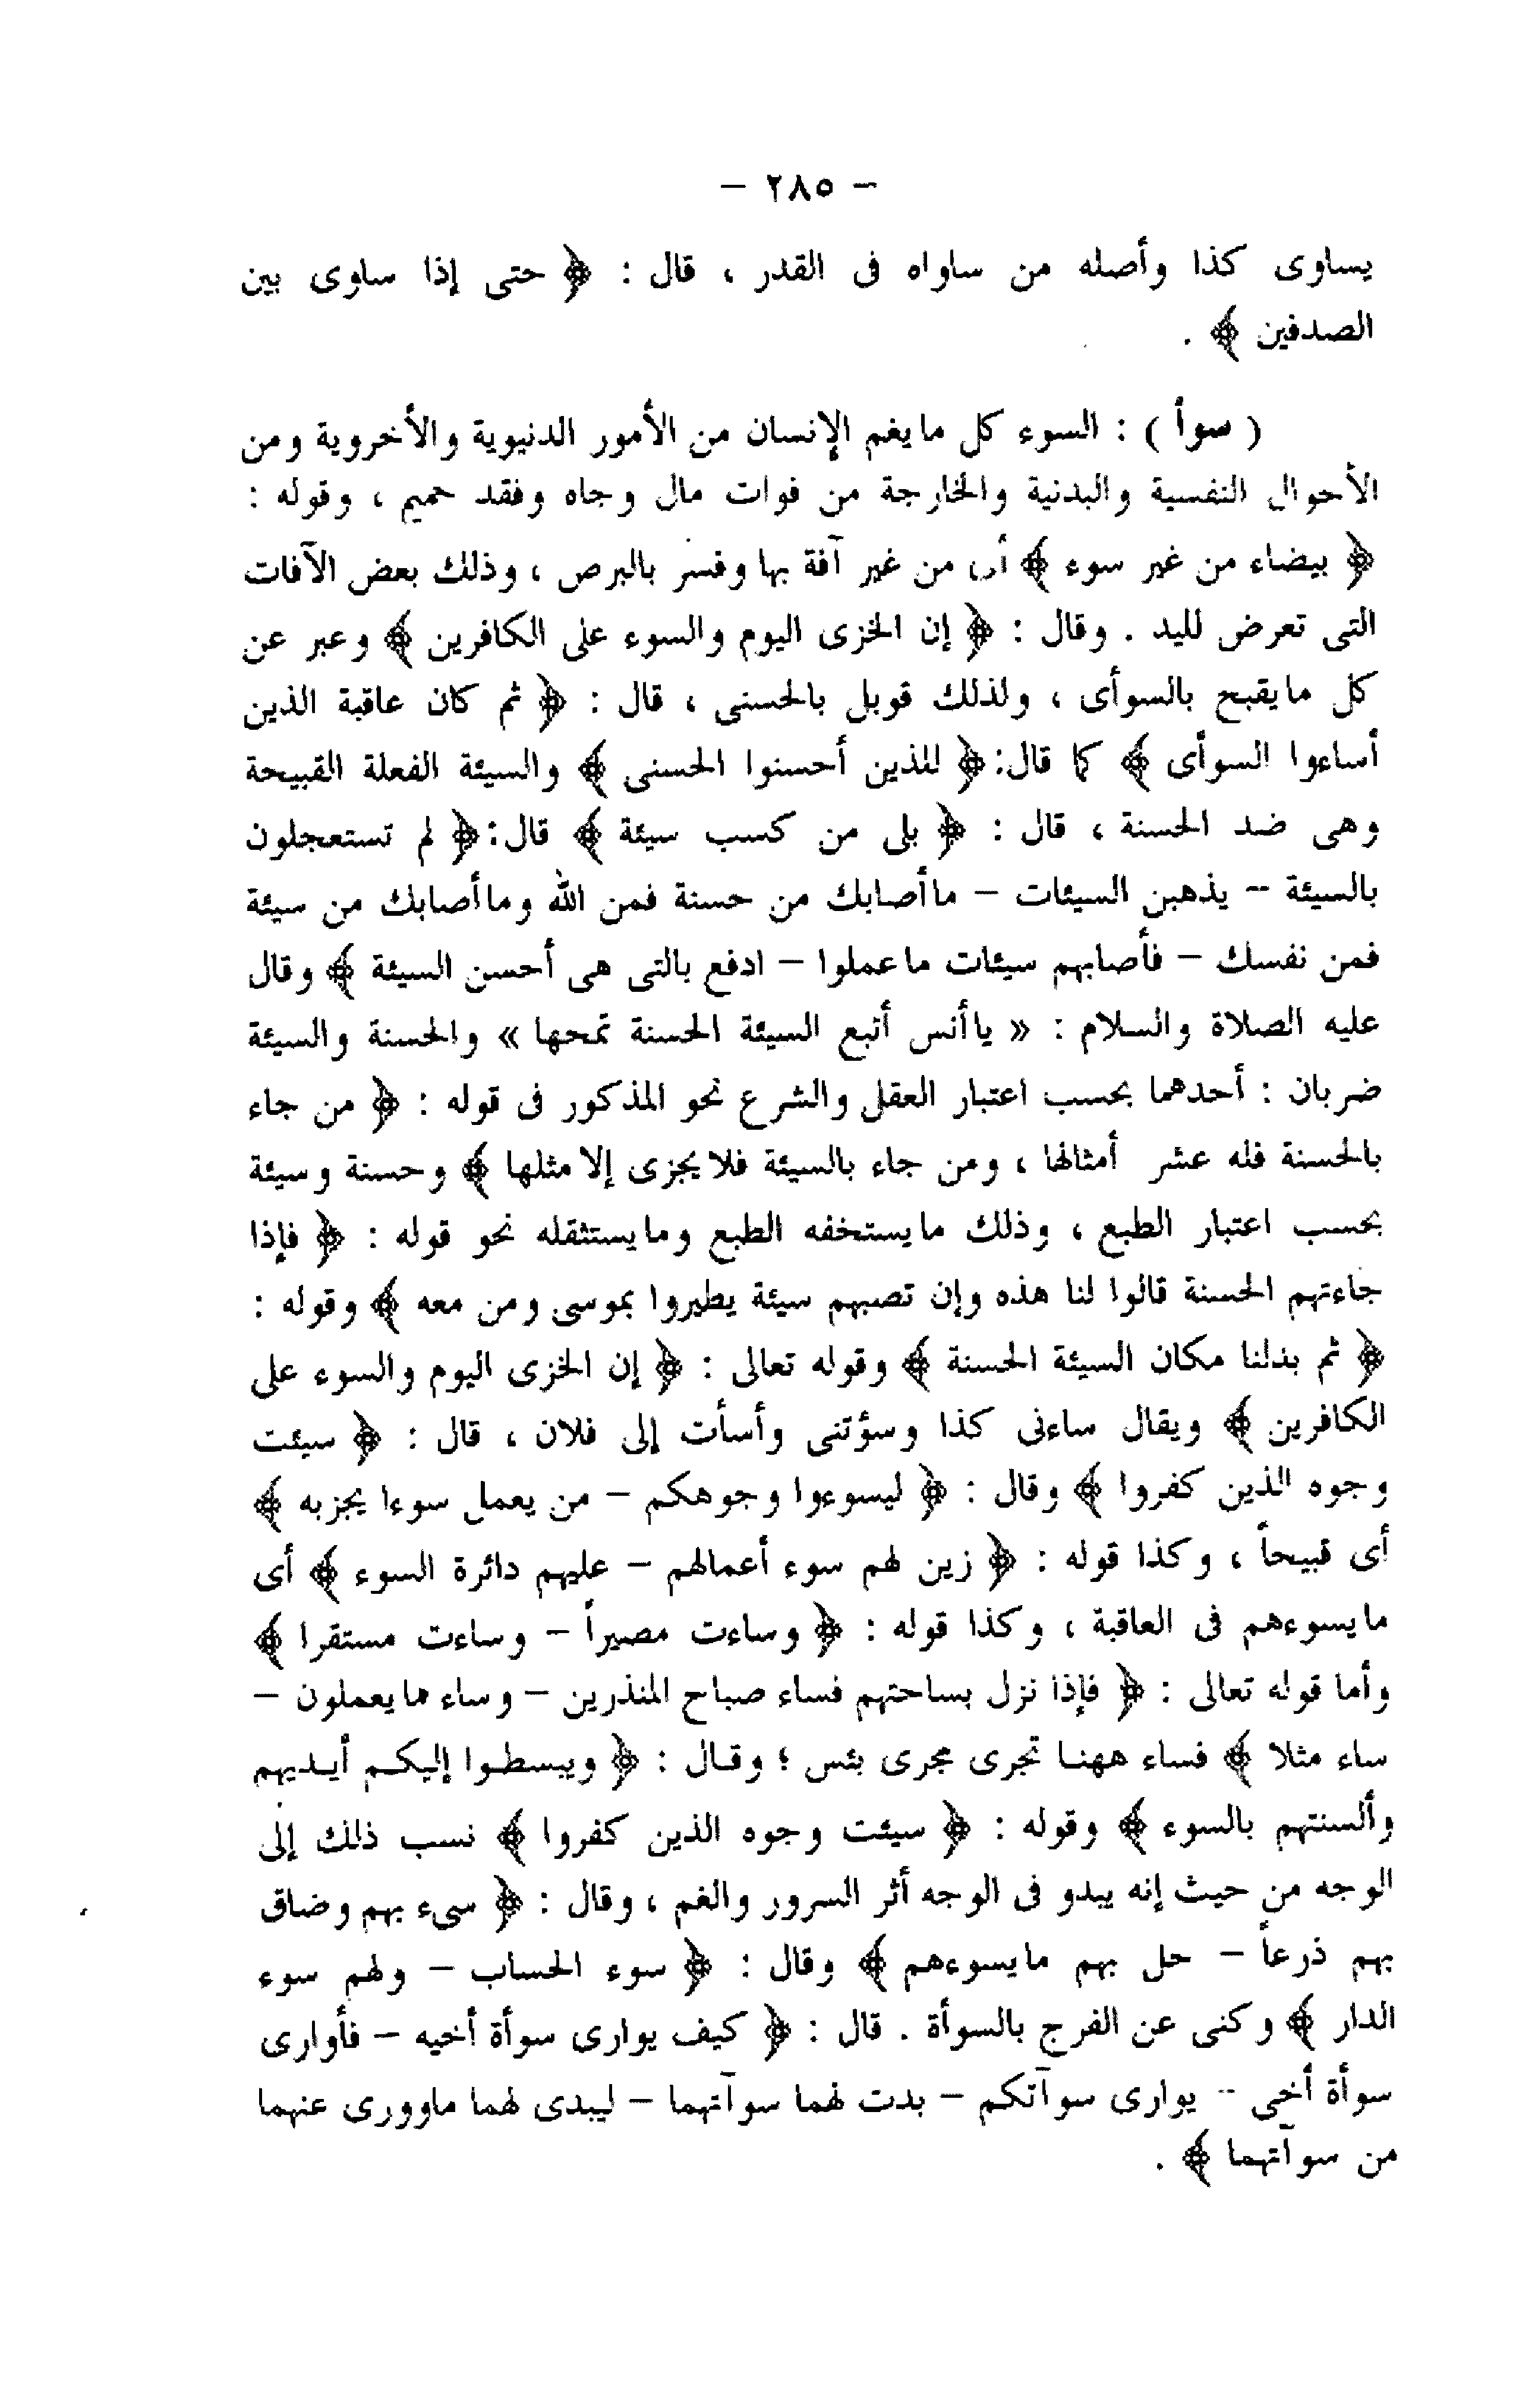 – ٢٨٥ –
يساوى كذا وأصله من ساواه فى القدر ، قال : ﴿ حتى إذا ساوى بين
الصدفين ﴾ .
( سوأ ) : السوء كل مايغم الإنسان من الأمور الدنيوية والأخروية ومن
الأحوال النفسية والبدنية والخارجة من فوات مال وجاه وفقد حميم ، وقوله :
﴿ بيضاء من غير سوء ﴾ أى من غير آفة بها وفسر بالبرص ، وذلك بعض الآفات
التى تعرض لليد . وقال : ﴿ إن الخزى اليوم والسوء على الكافرين ﴾ وعبر عن
كل مايقبح بالسوأى ، ولذلك قوبل بالحسنى ، قال : ﴿ ثم كان عاقبة الذين
أساءوا السوأى ﴾ كما قال: ﴿ للذين أحسنوا الحسنى ﴾ والسيئة الفعلة القبيحة
وهى ضد الحسنة ، قال : ﴿ بلى من كسب سيئة ﴾ قال: ﴿ لم تستعجلون
بالسيئة – يذهبن السيئات – ماأصابك من حسنة فمن الله وماأصابك من سيئة
فمن نفسك – فأصابهم سيئات ماعملوا – ادفع بالتى هى أحسن السيئة ﴾ وقال
عليه الصلاة والسلام : « ياأنس أتبع السيئة الحسنة تمحها » والحسنة والسيئة
ضربان : أحدهما بحسب اعتبار العقل والشرع نحو المذكور فى قوله : ﴿ من جاء
بالحسنة فله عشر أمثالها ، ومن جاء بالسيئة فلايجزى إلا مثلها ﴾ وحسنة وسيئة
بحسب اعتبار الطبع ، وذلك مايستخفه الطبع ومايستثقله نحو قوله : ﴿ فإذا
جاءتهم الحسنة قالوا لنا هذه وإن تصبهم سيئة يطيروا بموسى ومن معه ﴾ وقوله :
﴿ ثم بدلنا مكان السيئة الحسنة ﴾ وقوله تعالى : ﴿ إن الخزى اليوم والسوء على
الكافرين ﴾ ويقال ساءنى كذا وسؤتنى وأسأت إلى فلان ، قال : ﴿ سيئت
وجوه الذين كفروا ﴾ وقال : ﴿ ليسوءوا وجوهكم – من يعمل سوءا يجزبه ﴾
أى قبيحاً ، وكذا قوله : ﴿ زين لهم سوء أعمالهم – عليهم دائرة السوء ﴾ أى
مايسوءهم فى العاقبة ، وكذا قوله : ﴿ وساءت مصيراً – وساءت مستقرا ﴾
وأما قوله تعالى : ﴿ فإذا نزل بساحتهم فساء صباح المنذرين – وساء مايعملون –
ساء مثلا ﴾ فساء ههنا تجرى مجرى بئس ؛ وقال : ﴿ ويبسطوا إليكم أيديهم
وألسنتهم بالسوء ﴾ وقوله : ﴿ سيئت وجوه الذين كفروا ﴾ نسب ذلك إلى
الوجه من حيث إنه يبدو فى الوجه أثر السرور والغم ، وقال : ﴿ سىء بهم وضاق
بهم ذرعاً – حل بهم مايسوءهم ﴾ وقال : ﴿ سوء الحساب – ولهم سوء
الدار ﴾ وكنى عن الفرج بالسوأة . قال : ﴿ كيف يوارى سوأة أخيه – فأوارى
سوأة أخى – يوارى سوآتكم – بدت لهما سوآتهما – ليبدى لهما ماوورى عنهما
من سوآتهما ﴾ .